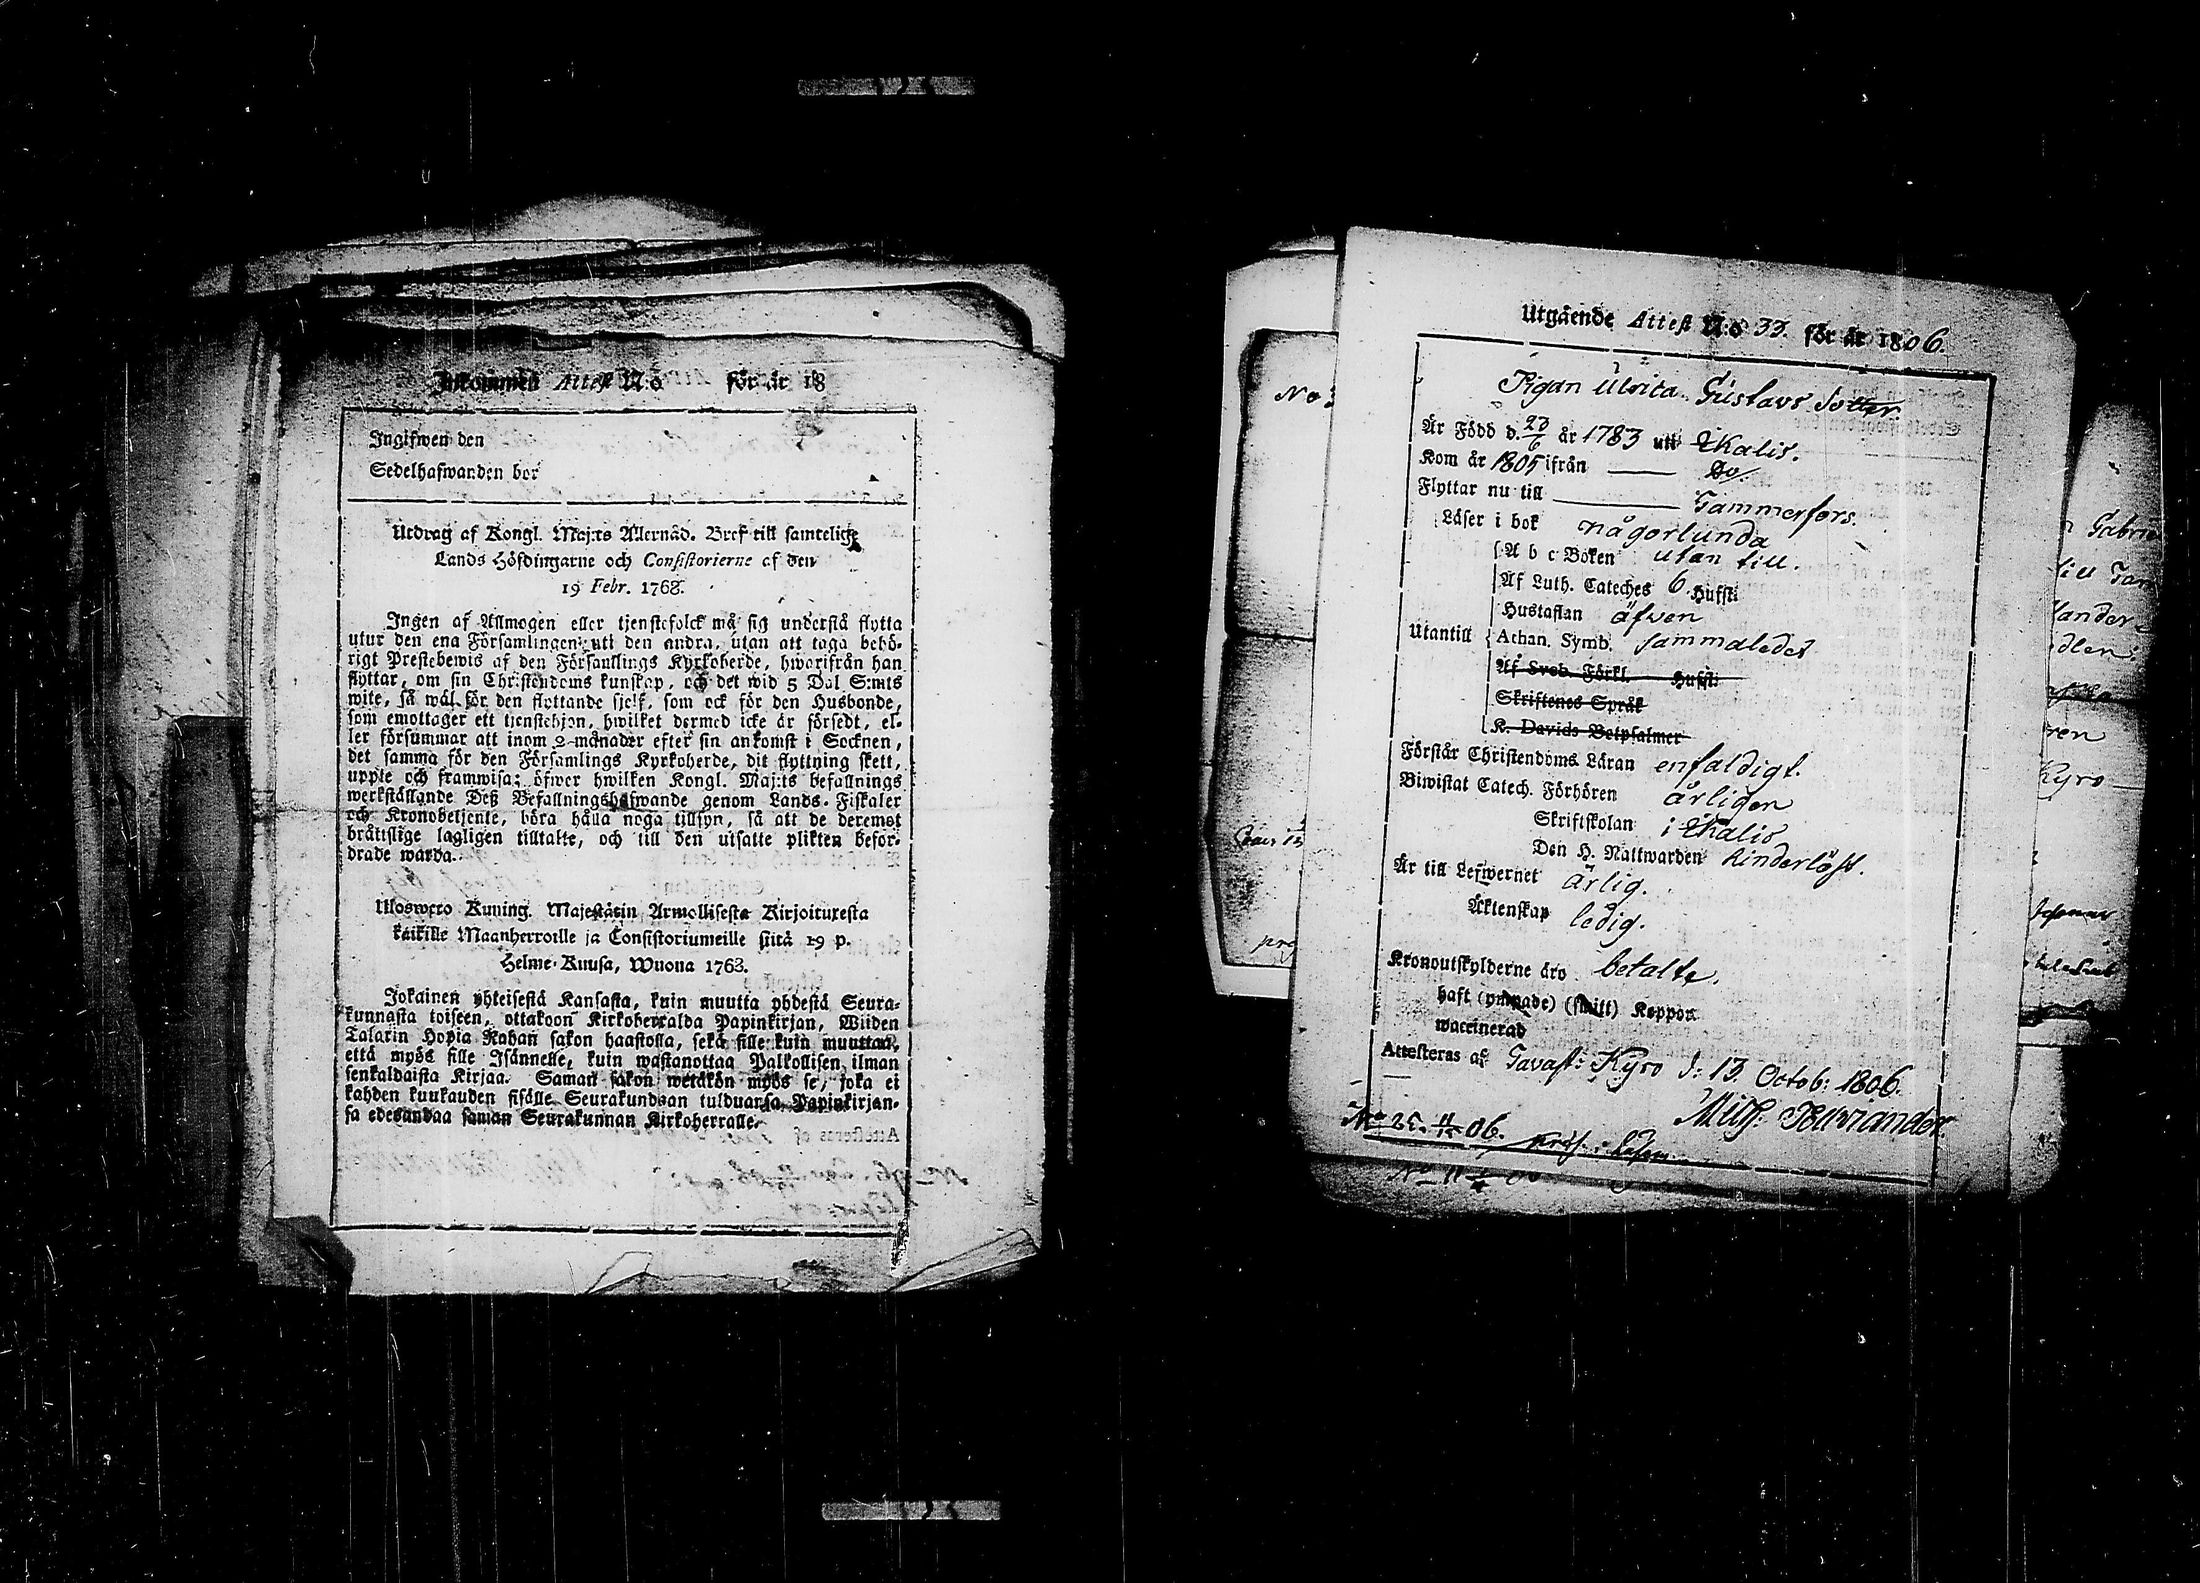 Inkommen Attest N:o för år 18
Ingifwen den
Sedelhafwanden bor
Utdrag af Kongl. Maj:ts Allernåd. Bref till samtelige
Lands Höfdingarne och Consistorierne af den
19 Febr. 1768.
Ingen af Allmogen eller tjenstefolck må sig understå flytta
utur den ena Församlingen uti den andra, utan att taga behö-
rigt Prestebewis af den Församlings Kyrkoherde, hwarifrån han
flyttar, om sin Christendoms kunskap, och det wid 5 Dal S:mts
wite, så wäl för den flyttande sjelf, som ock för den Husbonde,
som emottager ett tjenstehjon, hwilket dermed icke är försedt, el-
ler försummar att inom 2 månader efter sin ankomst i Socknen,
det samma för den Församlings Kyrkoherde, dit flyttning skett,
uppte och framwisa; öfwer hwilken Kongl. Maj:ts befallnings
werkställande Deß Befallningshafwande genom Lands-Fiskaler
och Kronobetjente, böra hålla noga tillsyn, så att de deremot
bråttslige lagligen tilltalte, och till den utsatte plikten befor-
drade warda.
Uloswето Kuning. Majestätin Armollisesta Kirjoituxesta
kaikille Maanherroille ja Consistoriumeille siitä 19 p.
Helme-Kuusa, Wuona 1768.
Jokainen yhteisestä Kansasta, kuin muutta yhdestä Seura-
kunnasta toiseen, ottakoon Kirkoherralda Papinkirjan, Wiiden
Talarin Hopia Rahan sakon haastolla, sekä sille kuin muuttaa,
että myös sille Isännelle, kuin wastanottaa Palkollisen ilman
senkaldaista Kirjaa. Saman sakon wetäkön myös se, joka ei
kahden kuukauden sisälle Seurakundaan tulduansa Papinkirjan-
sa edesandaa saman Seurakunnan Kirkoherralle.
Utgående Attest N:o 33. för år 1806.
Pigan Ulrica Gustavs dotter.
Är Född d. 23/6 år 1783 uti Ikalis.
Kom år 1805 ifrån Do.
Flyttar nu till Tammerfors.
Läser i bok någorlunda
A b c Boken utan till.
Af Luth. Cateches 6 Hufst:
Hustaflan äfwen
Utantill Athan. Symb. sammaledes
Af Sveb. Förkl. Hufst:
Skriftenes Språk
K. Davids Botpsalmer
Förstår Christendoms Läran enfaldigt.
Biwistat Catech. Förhören årligen
Skriftskolan i Ikalis
Den H. Nattwarden hinderlöst.
Är till Lefwernet ärlig.
Äktenskap ledig.
Kronoutskylderne äro betalte.
haft (ympade) (smitt) Koppor
waccinerad
Attesteras af Tavast: Kyro d: 13 Octob: 1806.
No 25.
06.
No 3
Gabri
till Tam
ren
Kyro